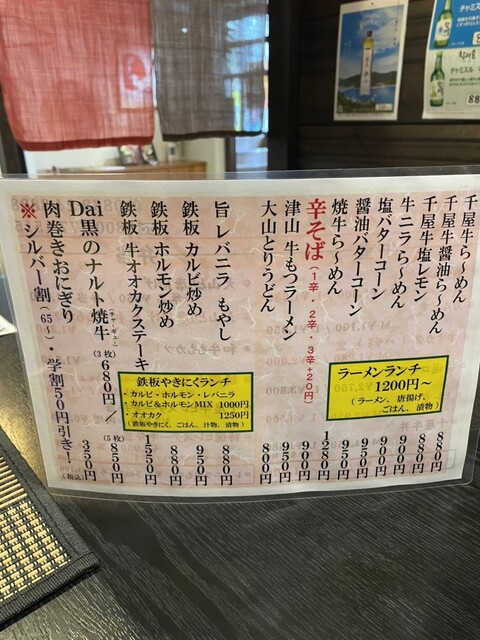 千屋牛ら〜めん 880円
千屋牛醤油ら〜めん 880円
千屋牛塩レモン 900円
牛ニラ ら〜めん 900円
塩バターコーン 900円
醤油バターコーン 950円
焼牛ら〜めん 1280円
辛そば(1辛・2辛・3辛+20円) 900円
津山 牛もつラーメン 950円
大山とりうどん 880円
ラーメンランチ
1200円〜
(ラーメン、唐揚げ、
ごはん、漬物)
旨 レバニラ もやし 880円
鉄板 カルビ炒め 950円
鉄板 ホルモン炒め 880円
鉄板 牛オオカクステーキ 1550円
鉄板やきにくランチ
・カルビ・ホルモン・レバニラ
・カルビ&ホルモンMIX 1000円
・オオカク 1250円
(鉄板やきにく、ごはん、汁物、漬物)
Dai黒のナルト焼牛(チャーギュー) (3枚)680円/(5枚)850円
肉巻きおにぎり 350円
※シルバー割(65〜)・学割50円引き! (税込)
チャミスル
チャミスル